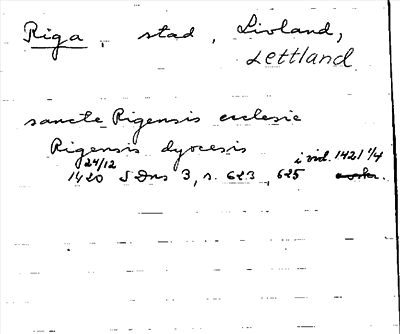 Riga, stad, Livland,
Lettland
sancte Rigensis ecclesie
Rigensis dyocesis
24/12 i vid. 1421 1/4
1420 SDns 3, s. 623, 625